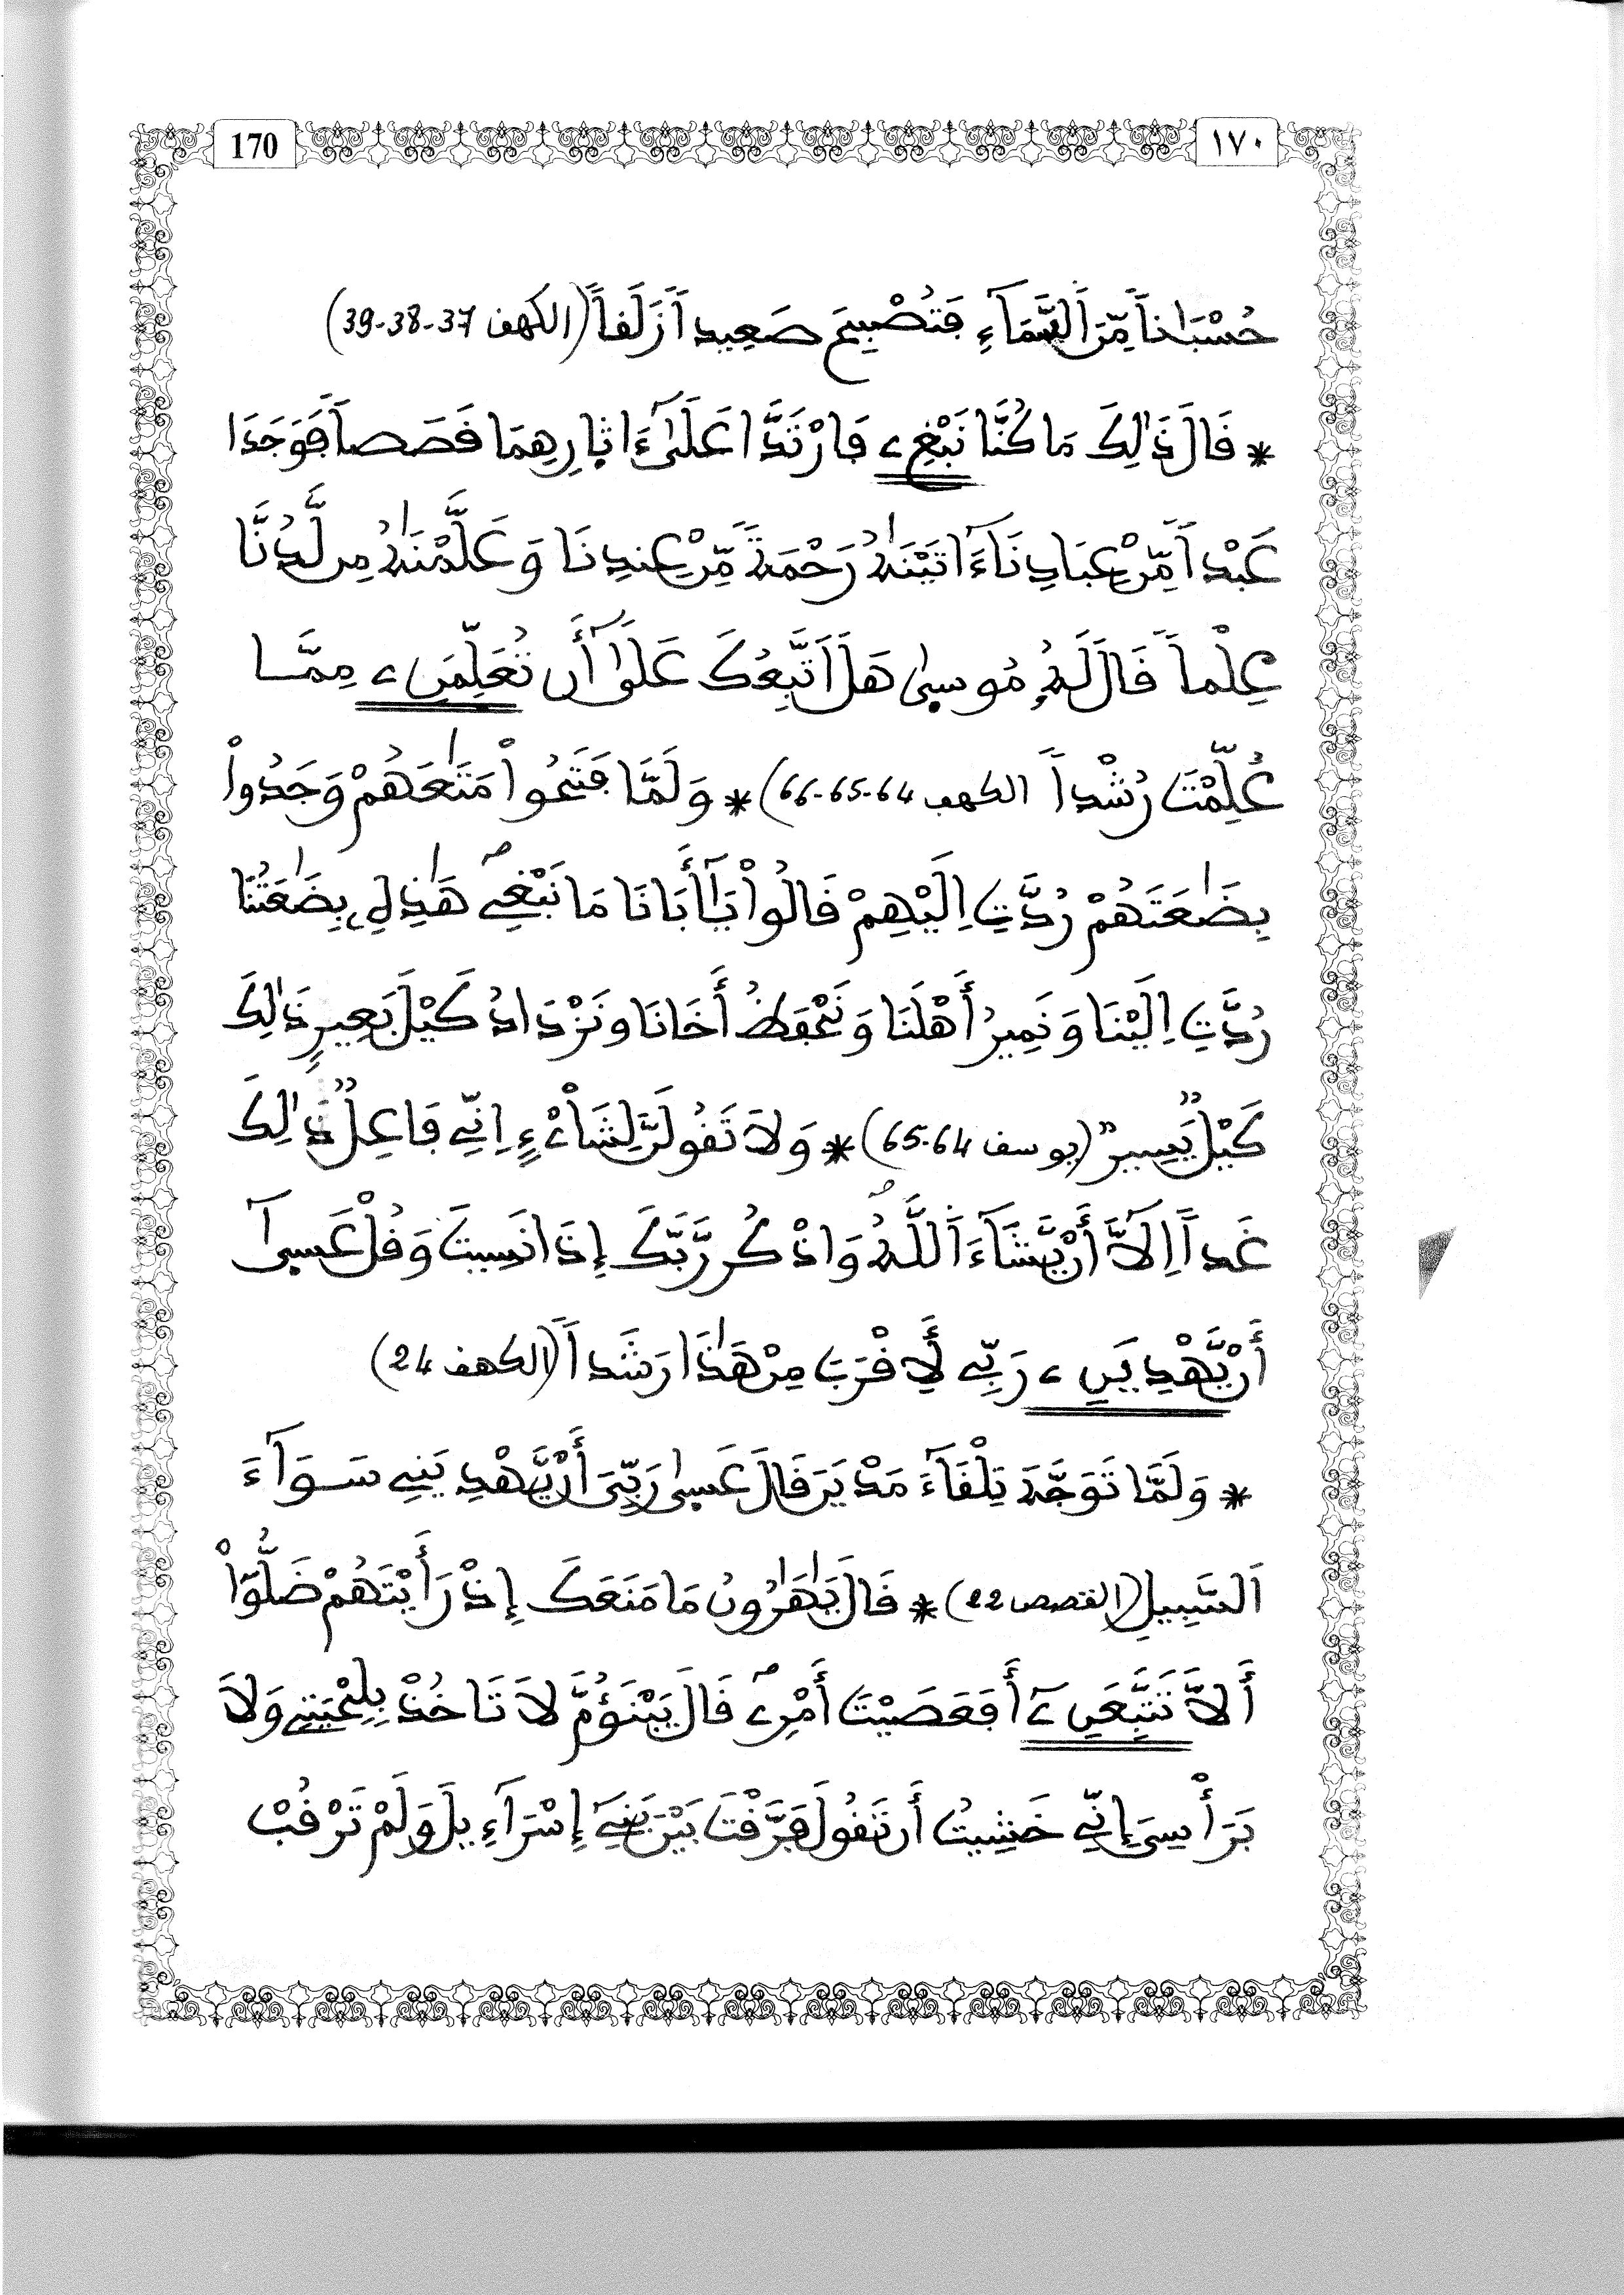 170 ١٧٠
حُسْبَاناً مِّنَ اَلسَّمَآءِ فَتُصْبِحَ صَعِيداً زَلَفاً (الكهف 37-38-39)
* قَالَ ذَٰلِكَ مَا كُنَّا نَبْغِۦ فَارْتَدَّا عَلَىٰٓ ءَاثٰارِهِمَا قَصَصاً فَوَجَدَا
عَبْداً مِّنْ عِبَادِنَآ ءَاتَيْنَٰهُ رَحْمَةً مِّنْ عِندِنَا وَعَلَّمْنَٰهُ مِن لَّدُنَّا
عِلْماً قَالَ لَهُۥ مُوسىٰ هَلَ اَتَّبِعُكَ عَلَىٰٓ أَن تُعَلِّمَنِۦ مِمَّا
عُلِّمْتَ رُشْداً الكهف 64-65-66) * وَلَمَّا فَتَحُواْ مَتَٰعَهُمْ وَجَدُواْ
بِضَٰعَتَهُمْ رُدَّتِ اِلَيْهِمْ قَالُواْ يَٰٓأَبَانَا مَا نَبْغِے هَٰذِهِۦ بِضَٰعَتُنَا
رُدَّتِ اِلَيْنَا وَنَمِيرُ أَهْلَنَا وَنَحْفَظُ أَخَانَا وَنَزْدَادُ كَيْلَ بَعِيرٍ ذَٰلِكَ
كَيْلٌ يَّسِيرٌ (يوسف 64-65) * وَلَا تَقُولَنَّ لِشَاْےْءٍ اِنِّے فَاعِلٌ ذَٰلِكَ
غَداً اِلَّآ أَنْ يَّشَآءَ اَللَّهُ وَاذْكُر رَّبَّكَ إِذَا نَسِيتَ وَقُلْ عَسىٰٓ
أَنْ يَّهْدِيَنِۦ رَبِّے لِأَقْرَبَ مِنْ هَٰذَا رَشَداً (الكهف 24)
* وَلَمَّا تَوَجَّهَ تِلْقَآءَ مَدْيَنَ قَالَ عَسىٰ رَبِّىَ أَنْ يَّهْدِيَنِے سَوَآءَ
اَلسَّبِيلِ (القصص 22) * قَالَ يَٰهَٰرُونُ مَا مَنَعَكَ إِذْ رَأَيْتَهُمْ ضَلُّوٓاْ
أَلَّا تَتَّبِعَنِۦٓ أَفَعَصَيْتَ أَمْرِے قَالَ يَبْنَؤُمَّ لَا تَاخُذْ بِلِحْيَتِے وَلَا
بِرَأْسِىَ إِنِّے خَشِيتُ أَن تَقُولَ فَرَّقْتَ بَيْنَ بَنِےٓ إِسْرَآءِيلَ وَلَمْ تَرْقُبْ